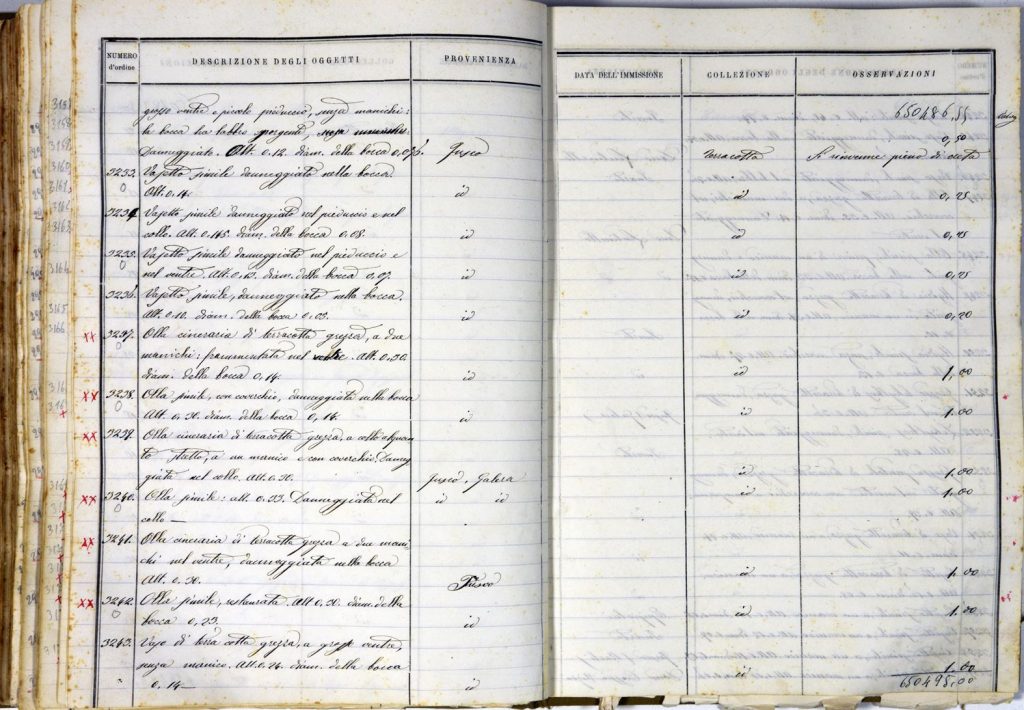 NUMERO d'ordine
DESCRIZIONE DEGLI OGGETTI
PROVENIENZA
DATA DELL'IMMISSIONE
COLLEZIONE
OSSERVAZIONI
650486,55
grosso ventre e piccolo pieduccio, senza manichi:
la bocca ha labbro sporgente,
0,50
Danneggiato. Alt. 0.12. diam. della bocca Fusco terracotta Si rinvenne pieno di
3233. Vasetto simile danneggiato nella bocca
Alt. 0.14. id id 0,25
3234. Vasetto simile danneggiato nel pieduccio e nel
collo. Alt. 0.145. diam. della bocca 0,08. id id 0,25
3235. Vasetto simile danneggiato nel pieduccio e
nel ventre. Alt. 0.12. diam. della bocca 0,07. id id 0,25
3236. Vasetto simile, danneggiato nella bocca.
Alt. 0.10. diam. della bocca 0,05. id id 0,20
xx 3237. Olla cineraria di terracotta grezza, a due
manichi; frammentata nel ventre. Alt. 0,30.
diam. della bocca 0,14. id id 1,00
xx 3238. Olla simile, con coverchio, danneggiata nella bocca
Alt. 0.30. diam. della bocca 0,14. id id 1.00
xx 3239. Olla cineraria di terracotta grezza, a collo alquan
to stretto, a un manico e con coverchio. Danneg
giata nel collo. Alt. 0.30. Fusco, Galera id 1,00
xx 3240. Olla simile: alt. 0.33. Danneggiata nel id id id 1,00
collo —
xx 3241. Olla cineraria di terracotta grezza a due mani
chi nel ventre, danneggiata nella bocca
Alt. 0.30. Fusco id 1.00
xx 3242. Olla simile, restaurata. Alt. 0,30. diam. della
bocca 0,23. id id 1,00
3243. Vaso di terra cotta grezza, a grosso ventre,
senza manico. Alt. 0.24. diam. della bocca
0.14— id id 1.00
650495,00